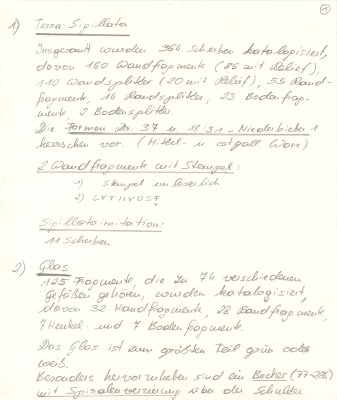 ①
1) Terra-Sigillata
Insgesamt wurden 364 Scherben katalogisiert,
davon 160 Wandfragmente (86 mit Relief),
110 Wandsplitter (20 mit Relief), 55 Rand-
fragmente, 14 Randsplitter, 23 Bodenfrag-
mente, 2 Bodensplitter.
Die Formen Dr. 37 u. 18/31 - Niederbieber 1
herrschen vor. (Mittel- u. ostgall. Ware)
2 Wandfragmente mit Stempel:
1) Stempel unleserlich
2) LVTIIVOSF
Sigillataimitation:
11 Scherben
2) Glas
125 Fragmente, die zu 74 verschiedenen
Gefäßen gehören, wurden katalogisiert,
davon 32 Wandfragmente, 28 Randfragmente,
7 Henkel- und 7 Bodenfragmente.
Das Glas ist zum größten Teil grün oder
weiß.
Besonders hervorzuheben sind ein Becher
mit Spiralenverzierung über der Schulter